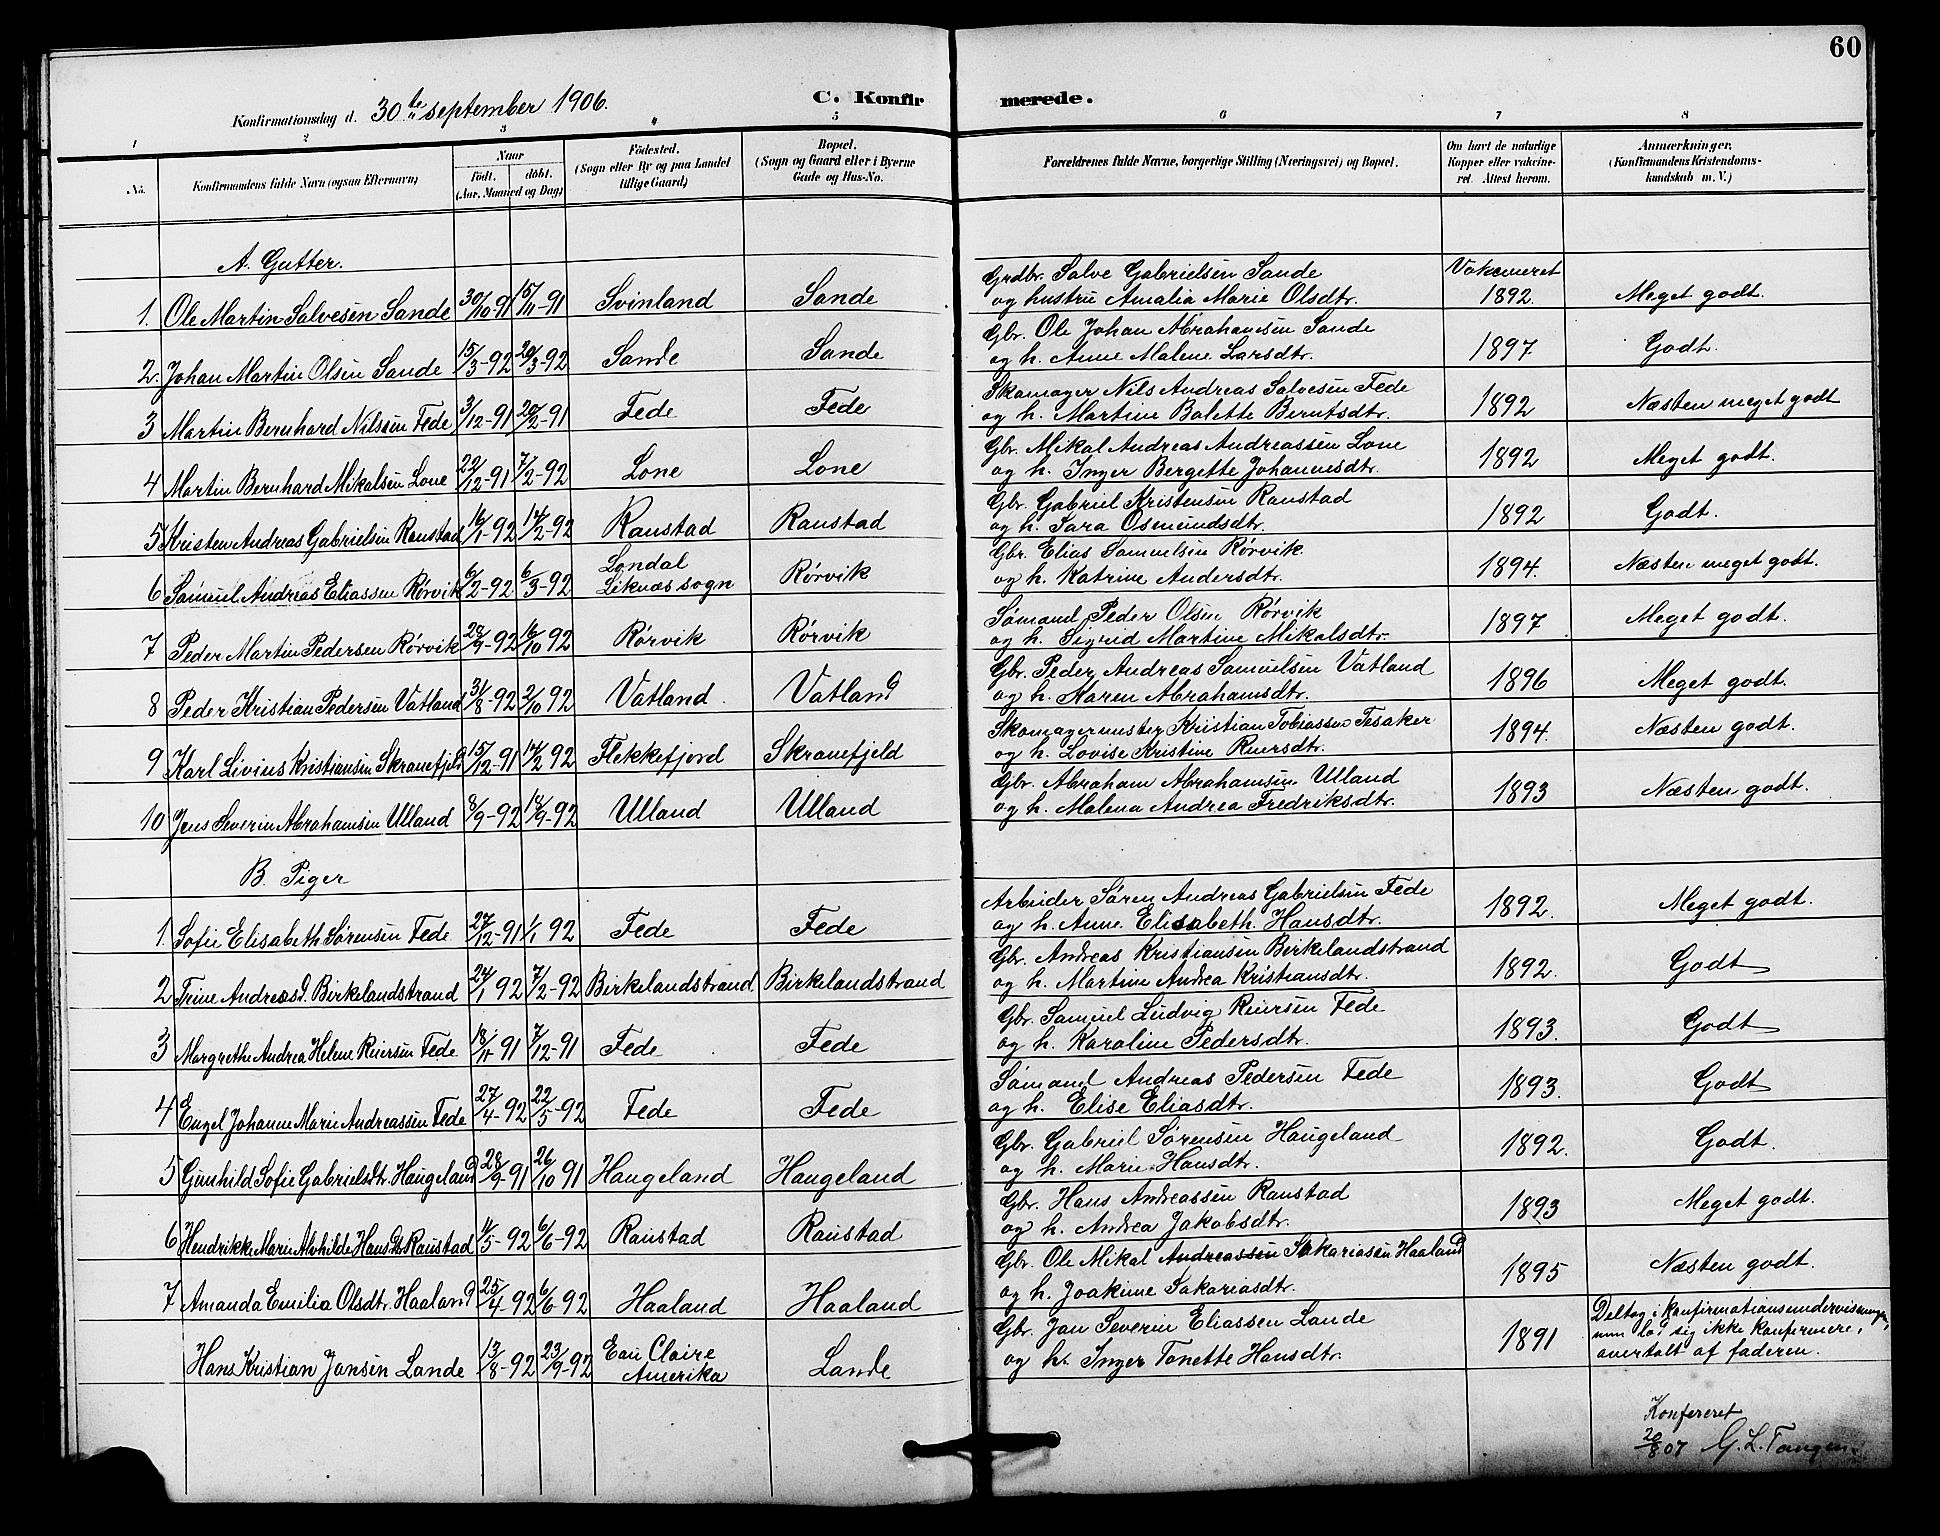 60
Konfirmationsdag d. 30te september 1906. C. Konfirmerede.
1 2 3 4 5 6 7 8
No. Konfirmandens fulde Navn (ogsaa Efternavn) Naar Født. døbt. (Aar, Maaned og Dag) Fødested. (Sogn eller By og paa Landet tillige Gaard) Bopæl. (Sogn og Gaard eller i Byerne Gade og Hus-No. Forældrenes fulde Navne, borgerlige Stilling (Næringsvei) og Bopæl. Om havt de naturlige Kopper eller vakcineret. Attest herom. Anmærkninger. (Konfirmandens Kristendomskundskab m. V.)
A. Gutter.
1. Ole Martin Salvesen Sande 30/10-91 15/11-91 Svinland Sande Grdbr. Salve Gabrielsen Sande og hustru Amalia Marie Olsdtr. Vakcineret 1892. Meget godt.
2. Johan Martin Olsen Sande 15/3-92 20/3-92 Sande Sande Gbr. Ole Johan Abrahamsen Sande og h. Anne Malene Larsdtr. 1897 Godt.
3 Martin Bernhard Nilsen Fede 3/12-91 20/12-91 Fede Fede Skomager Nils Andreas Salvesen Fede og h. Martine Bolette Berntsdtr. 1892 Næsten meget godt
4 Martin Bernhard Mikalsen Lone 22/12-91 7/2-92 Lone Lone Gbr. Mikal Andreas Andreassen Lone og h. Inger Bergette Johannesdtr. 1892 Meget godt.
5 Kristen Andreas Gabrielsen Raustad 16/1-92 14/2-92 Raustad Raustad Gbr. Gabriel Kristensen Raustad og h. Sara Osmundsdtr. 1892 Godt.
6 Samuel Andreas Eliassen Rørvik 6/2-92 6/3-92 Londal Liknæs sogn Rørvik Gbr. Elias Samuelsen Rørvik og h. Katrine Andersdtr. 1894. Næsten meget godt.
7 Peder Martin Pedersen Rørvik 28/9-92 16/10 92 Rørvik Rørvik Sømand Peder Olsen Rørvik og h. Sigrid Martine Mikalsdtr. 1897 Meget godt.
8 Peder Kristian Pedersen Vatland 31/8-92 2/10 92 Vatland. Vatland Gbr. Peder Andreas Samuelsen Vatland og h. Karen Abrahamsdtr. 1896 Meget godt.
9 Karl Livius Kristiansen Skranefjeld 15/12-91 14/2 92 Flekkefjord Skranefjeld Skomagermester Kristian Tobiassen Tesaker og h. Lovise Kristine Reiersdtr. 1894. Næsten godt.
10 Jens Severin Abrahamsen Ulland 8/9-92 18/9-92 Ulland Ulland Gbr. Abraham Abrahamsen Ulland og h. Malena Andrea Fredriksdtr. 1893 Næsten godt.
B. Piger
1. Sofie Elisabeth Sørensen Fede 27/12-91 1/1 92 Fede Fede Arbeider Søren Andreas Gabrielsen Fede og h. Anne Elisabeth Hansdtr. 1892. Meget godt.
2 Trine Andreasd. Birkelandstrand 24/1 92 7/2-92 Birkelandstrand Birkelandstrand Gbr. Andreas Kristiansen Birkelandstrand og h. Martine Andrea Kristiansdtr. 1892. Godt
3 Margrethe Andrea Helene Reiersen Fede 18/11 91 7/12-91 Fede Fede Gbr. Samuel Ludvig Reiersen Fede og h. Karoline Pedersdtr. 1893. Godt
4 Engel Johanne Marie Andreassen Fede 27/4-92 22/5-92 Fede Fede Sømand Andreas Pedersen Fede og h. Elise Eliasdtr. 1893. Godt
5 Gunhild Sofie Gabrielsdtr. Haugeland 28/9-91 26/10 91 Haugeland Haugeland Gbr. Gabriel Sørensen Haugeland og h. Marie Hansdtr. 1892. Godt.
6 Hendrikke Marie Alvhilde Hansdtr Raustad 1/5-92 6/6-92 Raustad Raustad Gbr. Hans Andreassen Raustad og h. Andrea Jakobsdtr. 1893 Meget godt.
7 Amanda Emilia Olsdtr. Haaland 25/4-92 6/6-92 Haaland Haaland Gbr. Ole Mikal Andreassen Sakariasen Haaland og h. Joakime Sakariasdtr. 1895 Næsten godt.
Hans Kristian Jansen Lande 13/8-92 23/9-92 Eau Claire Amerika Lande Gbr. Jan Severin Eliassen Lande og h. Inger Tonette Hansdtr. 1891 Deltog i konfirmationsundervisningen, men lod sig ikke konfirmere, overtalt af faderen.
Konfereret
20/8 07 G. L. Tangen.